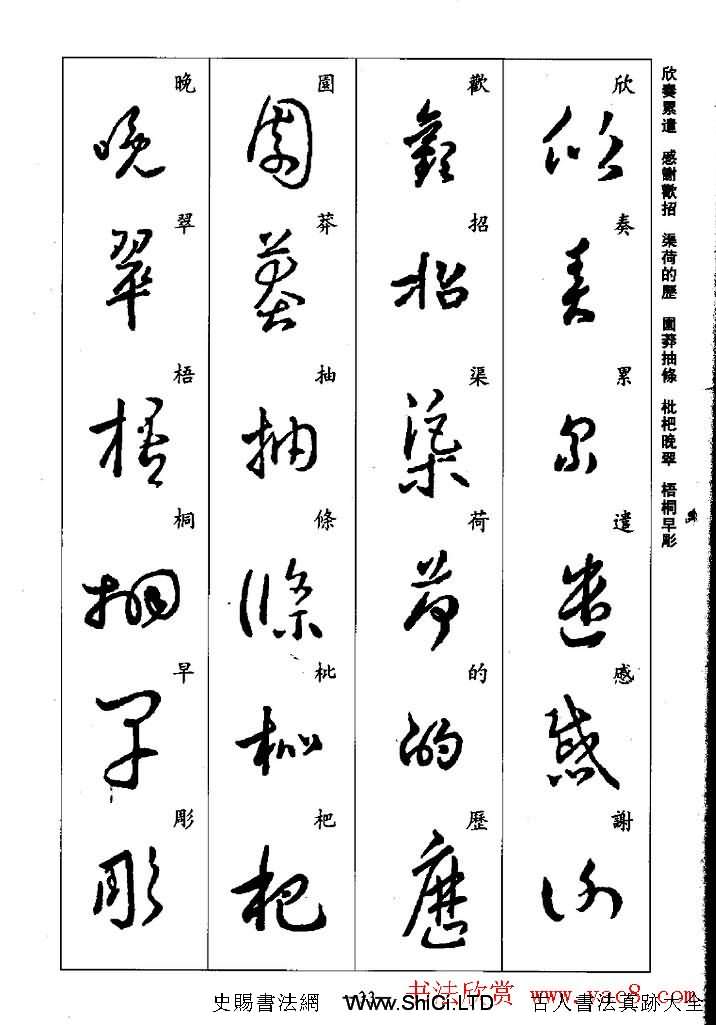 欣奏累遣 感謝歡招 渠荷的歷 園莽抽條 枇杷晚翠 梧桐早彫
欣奏累遣感謝
欣奏累遣感謝
歡招渠荷的歷
歡招渠荷的歷
園莽抽條枇杷
園莽抽條枇杷
晚翠梧桐早彫
晚翠梧桐早彫
书法欣赏 www.yac8.com
史賜書法網 www.ShiCi.LTD 古人書法真跡大全